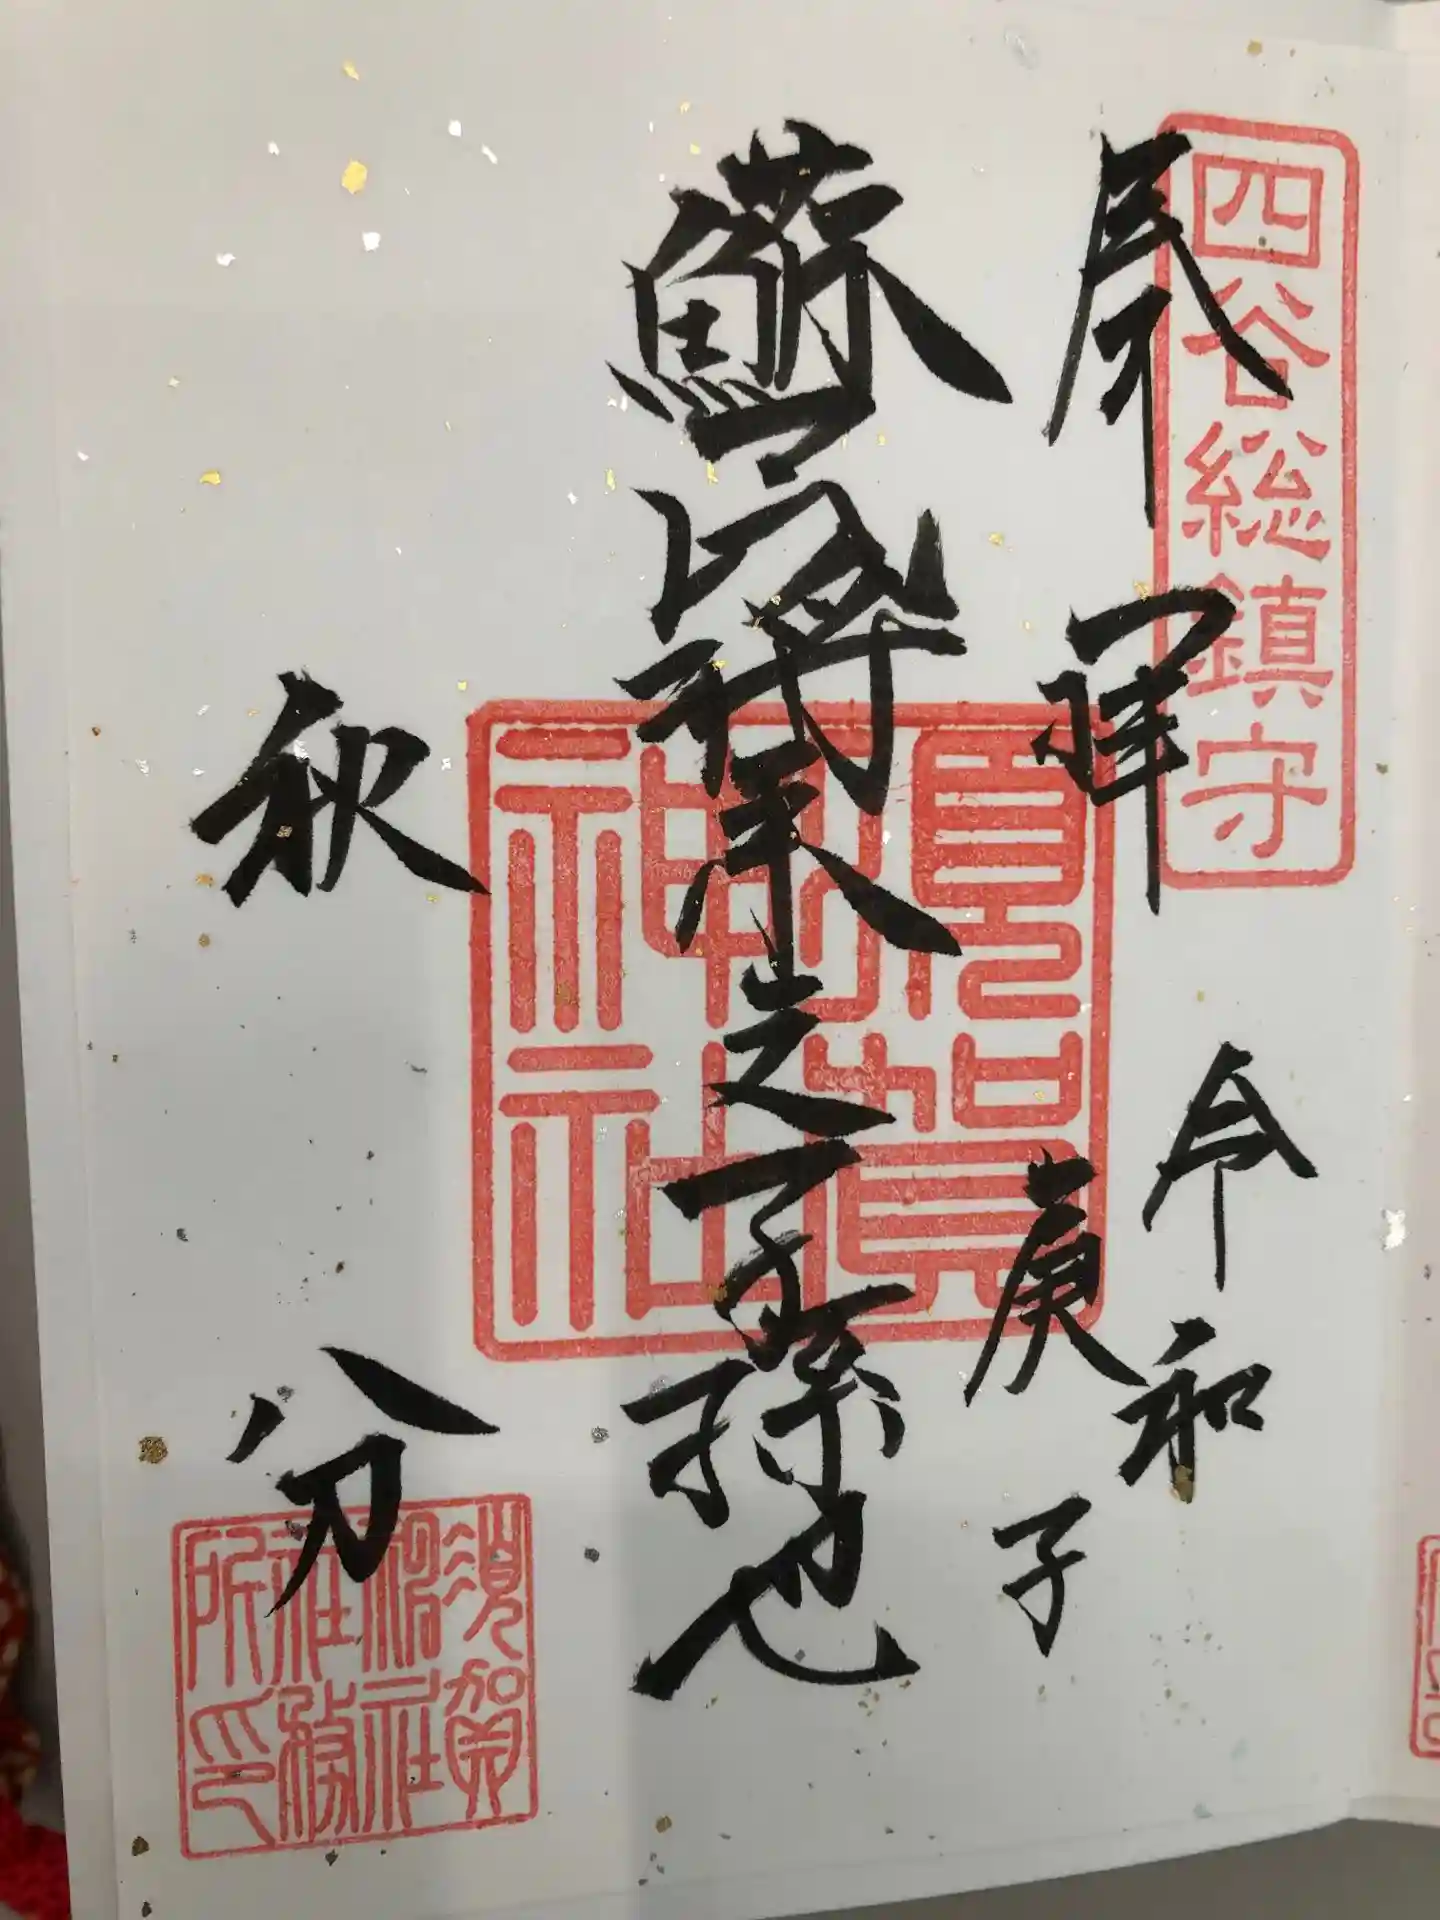 四谷総鎮守
拝
令和
庚子
蘇民將来之子孫也
須賀神社
秋分
須賀神社社務所印